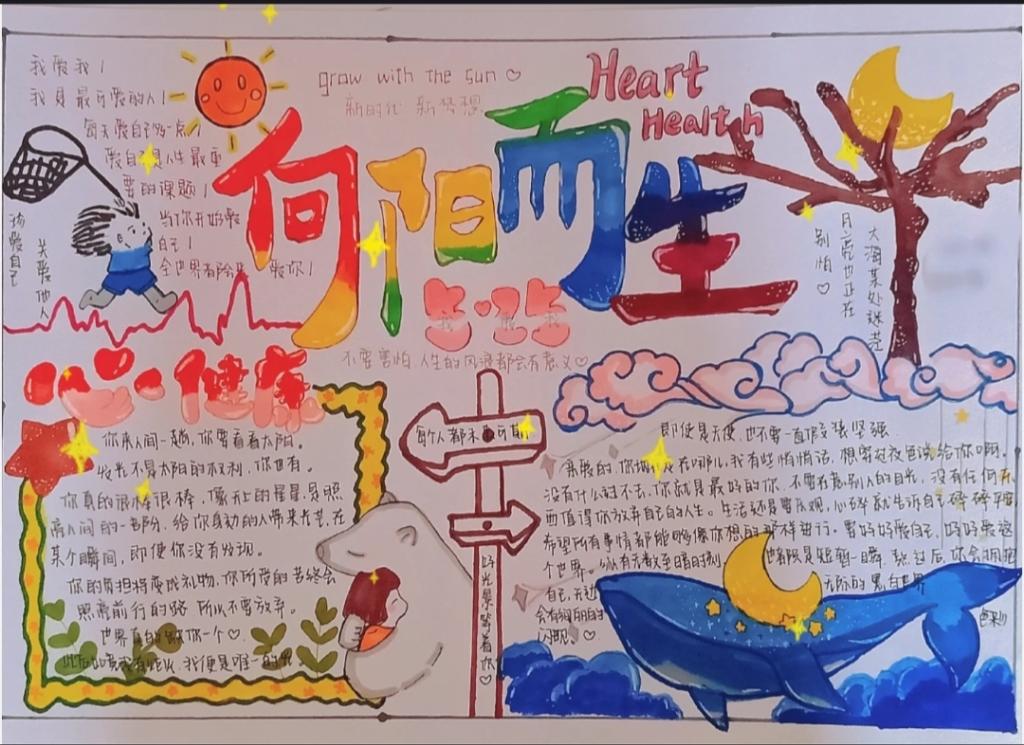 我爱我！
我是最可爱的人！
每天爱自己多一点！
爱自己是人生最重
要的课题！
当你开始爱
自己！
全世界都会来爱你！
grow with the sun
新时代 新梦想
Heart
Health
向阳而生
5·25
我 我
关爱他人
大海某处迷茫
月亮也正在
别怕
心·健康
不要害怕，人生的风浪都会有意义
每个人都未来可期
好光景等着你
你来人间一趟，你要看看太阳。
发光不是太阳的权利，你也有。
你真的很棒很棒，像天上的星星，是照
亮人间的一部份，给你身边的人带来光芒，在
某个瞬间，即使你没有发现。
你的负担将变成礼物，你所受的苦终会
照亮前行的路 所以不要放弃。
世界真的就你一个
此后如竟没有炬火，我便是唯一的光
即使是天使，也不要一直故作坚强
亲爱的，你现在在哪儿，我有些悄悄话，想穿过夜色说给你听。
没有什么过不去，你就是最好的你，不要在意别人的目光，没有任何东
西值得你放弃自己的人生。生活还是要乐观，心碎就告诉自己碎碎平安
希望所有事情都能够像你想的那样进行。要好好爱自己，好好爱这
个世界。纵有无数至暗时刻，也都只是短暂一瞬，熬过后，你会明白
自己
无际的黑白世界
会有绚丽的色彩
闪现。